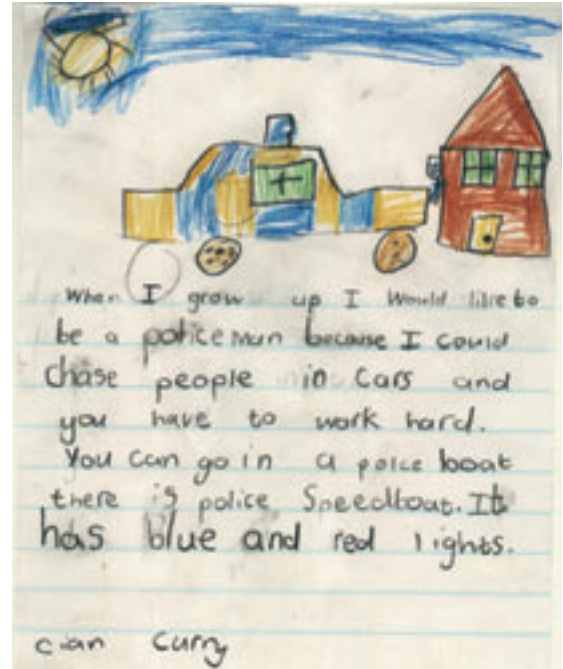 When I grow up I would like to
be a policeman because I could
chase people in cars and
you have to work hard.
You can go in a police boat
there is police Speedboat. It
has blue and red lights.
cian curry